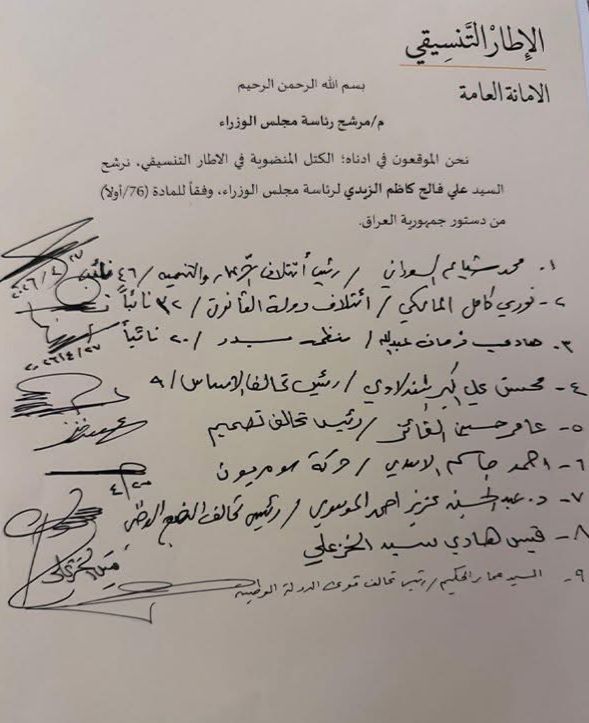 الإطار التَّنسِيقي
الامانة العامة
بسم الله الرحمن الرحيم
م/مرشح رئاسة مجلس الوزراء
نحن الموقعون في ادناه؛ الكتل المنضوية في الاطار التنسيقي، نرشح
السيد علي فالح كاظم الزيدي لرئاسة مجلس الوزراء، وفقاً للمادة (76/أولاً)
من دستور جمهورية العراق.
١. محمد شياع السوداني / رئيس أئتلاف الإعمار والتنمية / ٤٦ نائب
٢- نوري كامل المالكي / أئتلاف دولة القانون / ٣٢ نائباً
٣. هادي فرحان عبدالله / منظمة بدر / ٢٠ نائباً
٢٠٢٦/٤/٢٧
٤- محسن علي اكبر المندلاوي / رئيس تحالف الاساس / ٩
٥- عامر حسين الفائز / رئيس تحالف تصميم
٦- احمد جاسم الاسدي / حركة سومريون
٧- د. عبدالحسين عزيز احمد الموسوي / رئيس تحالف النهج الوطني
٨- قيس هادي سيد الخزعلي
٩- السيد عمار الحكيم / رئيس تحالف قوى الدولة الوطنية